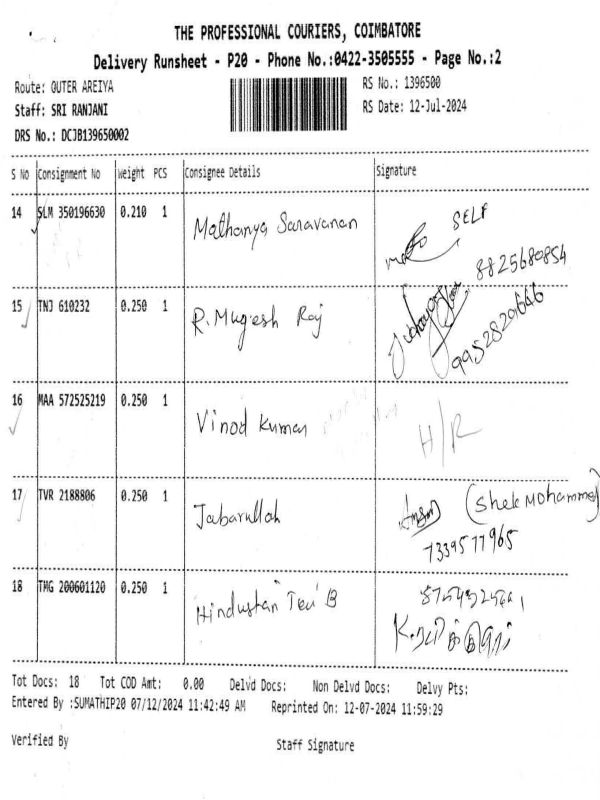 THE PROFESSIONAL COURIERS, COIMBATORE
Delivery Runsheet - P20 - Phone No.:0422-3505555 - Page No.:2
Route: OUTER AREIYA RS No.: 1396500
Staff: SRI RANJANI RS Date: 12-Jul-2024
DRS No.: DCJB139650002
S No Consignment No Weight PCS Consignee Details Signature
14 SLM 350196630 0.210 1 Mathanya Saravanan SELF
8825680854
15 TNJ 610232 0.250 1 R. Mugesh Raj
9952829646
16 MAA 572525219 0.250 1 Vinod Kumar H/R
17 TVR 2188806 0.250 1 Jabarullah (Shek Mohammed)
7339577965
18 TMG 200601120 0.250 1 Hindustan B
Tot Docs: 18 Tot COD Amt: 0.00 Delvd Docs: Non Delvd Docs: Delvy Pts:
Entered By :SUMATHIP20 07/12/2024 11:42:49 AM Reprinted On: 12-07-2024 11:59:29
Verified By Staff Signature